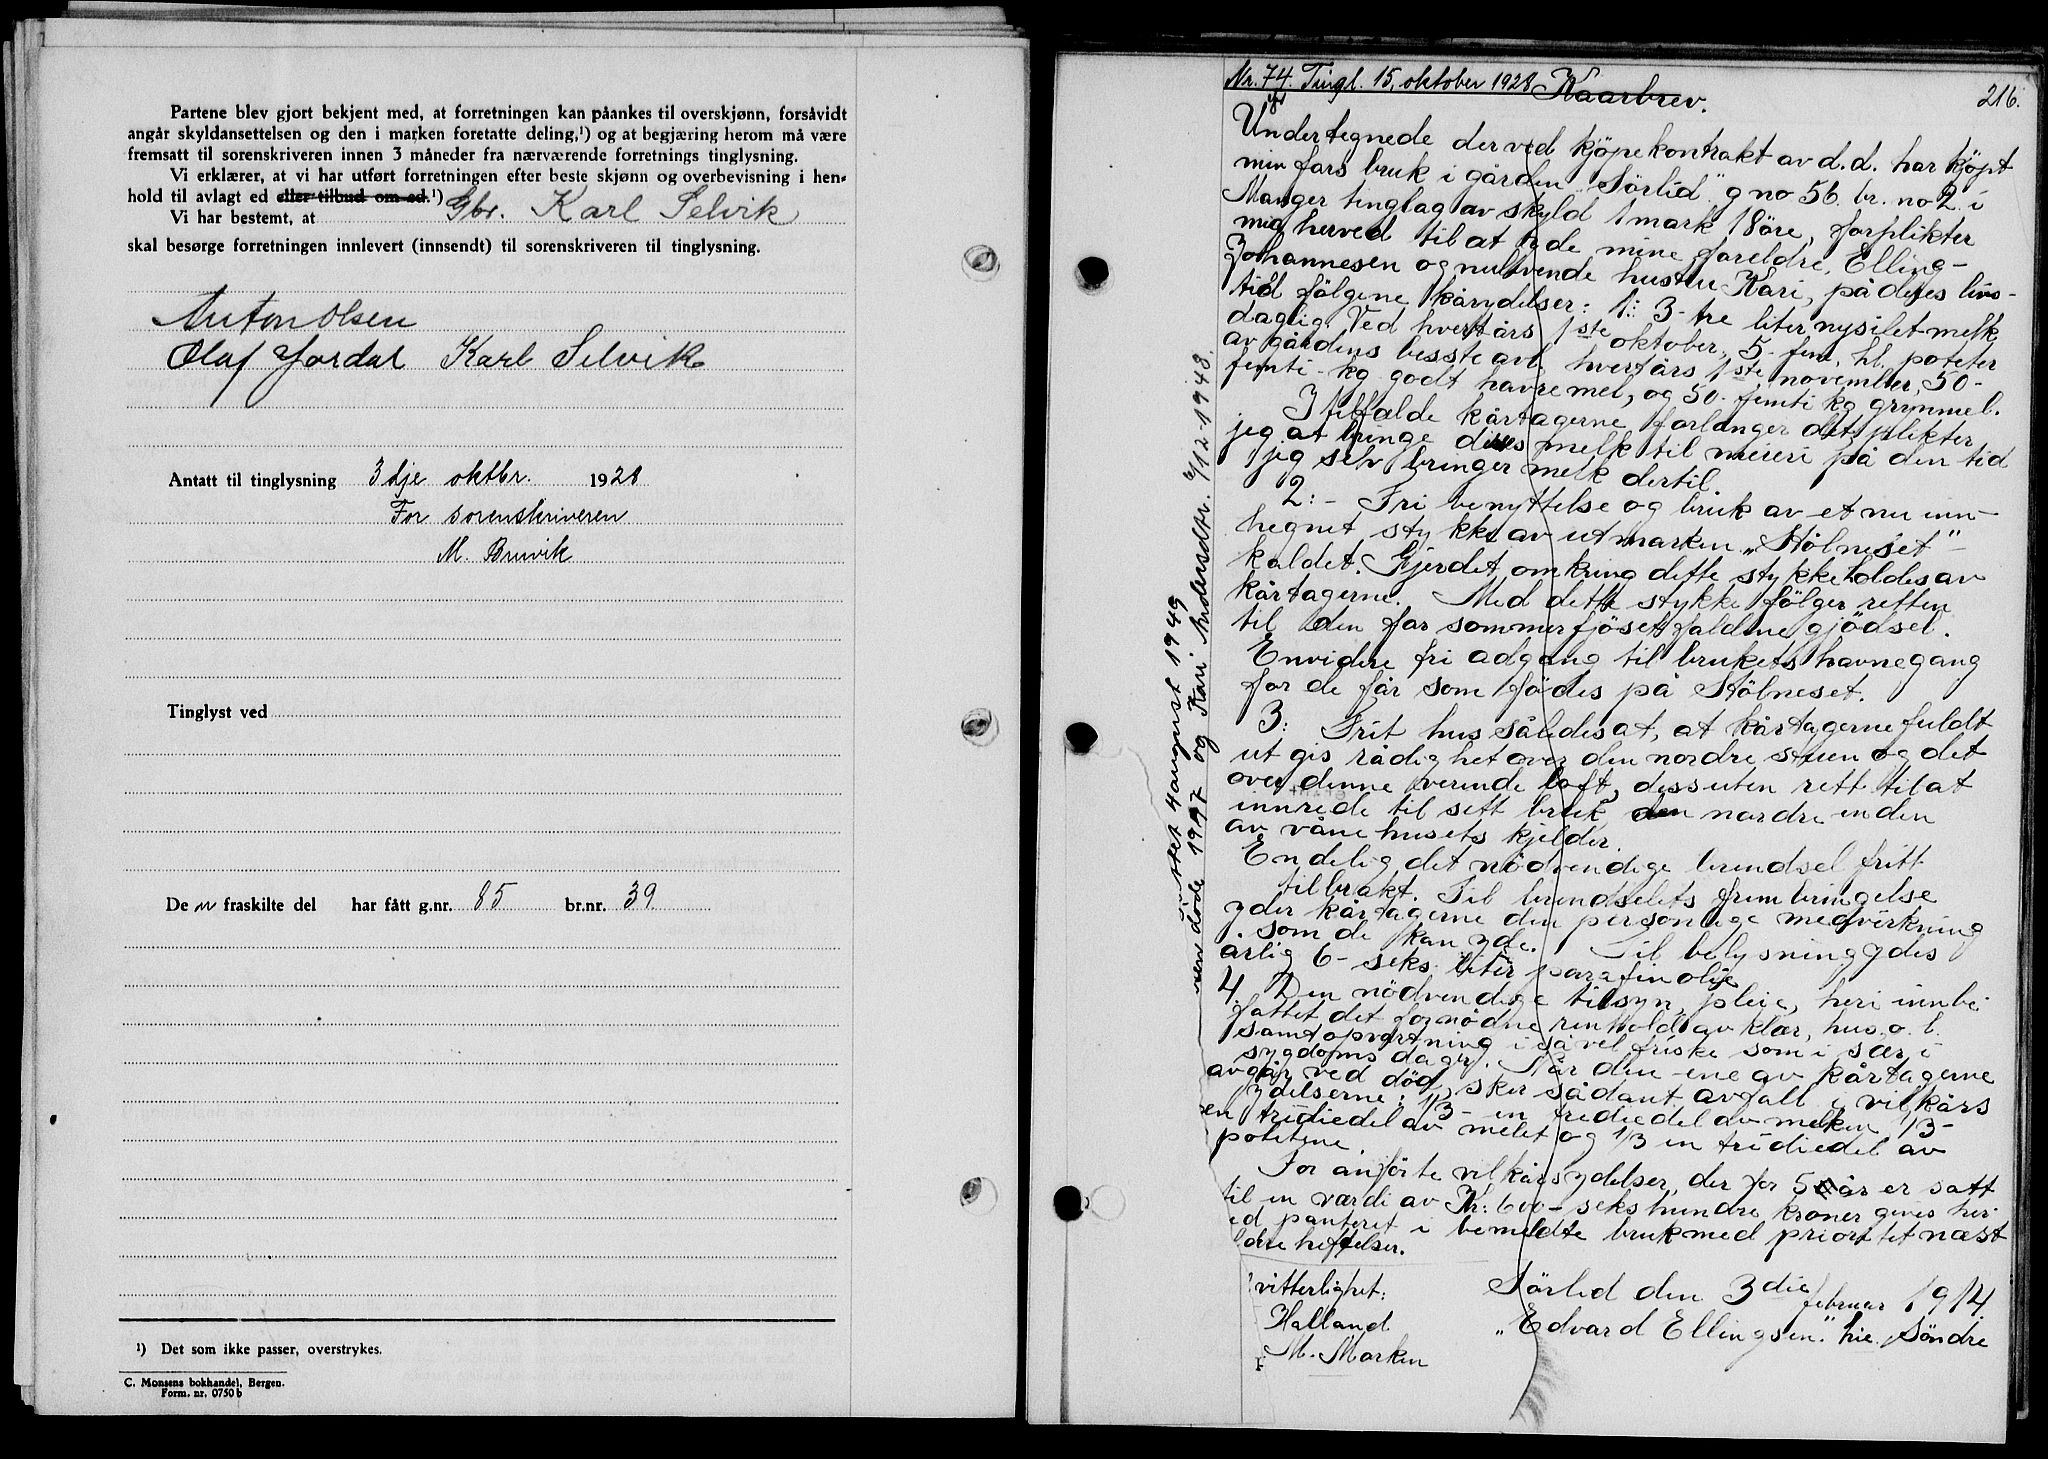 Partene blev gjort bekjent med, at forretningen kan påankes til overskjønn, forsåvidt
angår skyldansettelsen og den i marken foretatte deling,¹) og at begjæring herom må være
fremsatt til sorenskriveren innen 3 måneder fra nærværende forretnings tinglysning.
Vi erklærer, at vi har utført forretningen efter beste skjønn og overbevisning i hen-
hold til avlagt ed eller tilbud om ed.¹)
Vi har bestemt, at Gbr. Karl Selvik
skal besørge forretningen innlevert (innsendt) til sorenskriveren til tinglysning.
Anton Olsen
Olaf Jordal Karl Selvik
Antatt til tinglysning 3dje oktbr. 1928
For sorenskriveren
M. Bruvik
Tinglyst ved
De n fraskilte del har fått g.nr. 85 br.nr. 39
¹) Det som ikke passer, overstrykes.
C. Monsens bokhandel, Bergen.
Form. nr. 0750 b
Nr. 74. Tingl. 15, oktober 1928 Kaarbrev. 216.
Undertegnede der ved kjöpekontrakt av d.d. har köpt
min fars bruk i gården "Sörlid" g no 56. br. no 2 i
Manger tinglag av skyld 1 mark 18 öre, forplikter
mig herved til at yde mine foreldre, Elling-
Johannesen og nulevende hustru Kari, på deres livs-
tid fölgene kårydelser: 1: 3- tre liter nysilet melk
daglig. Ved hvert års 1ste oktober, 5- fem, hl. poteter
av gårdens besste avl. hvert års 1ste november, 50-
femti- kg godt havremel, og 50. femti kg grynmel.
I tilfælde kårtagerne forlanger det plikter
jeg at bringe dises melk til meieri på den tid
jeg selv bringer melk dertil.
2:- Fri benyttelse og bruk av et nu inn-
hegnet stykke av utmarken "Stölneset"-
kaldet. Gjerdet omkring dette stykke holdes av
kårtagerne. Med dette stykke fölger retten
til den for sommerfjöset faldne gjödsel.
Envidere fri adgang til brukets havnegang
for de får som födes på Stölneset.
3: Frit hus således at, at kårtagerne fuldt
ut gis rådighet over den nordre stuen og det
over denne værende loft, dessuten rett til at
innrede til sett bruk, den nordre enden
av våne husets kjelder.
Endelig det nödvendige brendsel fritt
tilbrakt. Til brendselets frembringelse
yder kårtagerne den personlige medvirkning
som de kan yde. Til belysning ydes
årlig 6- seks liter parafinolje
4. Den nödvendige tilsyn, pleie, heri innbe-
fattet det fornödne renhold av klær, hus. o. l.
samt opvartning i såvel friske som i sær i
sygdoms dager. Når den ene av kårtagerne
avgår ved död, sker sådant avfall i vilkårs
ydelserne: 1/3- en trediedel av melken 1/3-
en trediedel av melet og 1/3 en trediedel av
potetene
For anförte vilkårsydelser, der for 5 år er satt
til en værdi av Kr: 600- seks hundre kroner gives her-
ed panteret i bemeldte bruk med prioritet næst
ldre heftelser.
vitterlighet:
Halland
M. Marken
Sörlid den 3die februar 1914
"Edvard Ellingsen." hie. Söndre
attet 4 august 1949
sen döde 1947 og Kari Andersdtr. 6/12-1943.